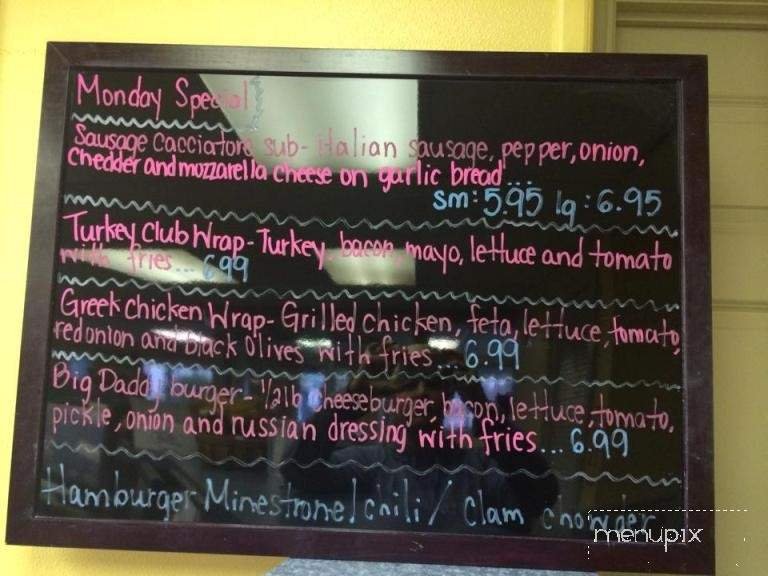 Monday Special
Sausage Cacciatore sub- italian sausage, pepper, onion,
Chedder and mozzarella cheese on garlic bread...
sm: 5.95 lg: 6.95
Turkey Club Wrap- Turkey, bacon, mayo, lettuce and tomato
with fries... 6.99
Greek Chicken Wrap- Grilled chicken, feta, lettuce, tomato,
red onion and black olives with fries... 6.99
Big Daddy burger- 1/2 lb cheeseburger, bacon, lettuce, tomato,
pickle, onion and russian dressing with fries... 6.99
Hamburger Minestrone / chili / clam chowder
menupix